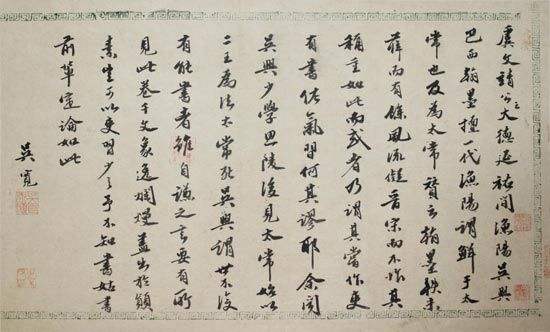 虞文靖公云大德延祐間漁陽吳興
巴西翰墨擅一代漁陽謂鮮于太
常也及為太常贊云翰墨軼米
薛而有餘風流儗晉宋而不怍其
稱重如此而或者乃謂其嘗作吏
有書佐氣習何其謬耶余聞
吳興少學思陵後見太常始以
二王為法太常死吳興謂世不復
有能書者雖自謙之言要有所
見此卷千文豪逸爛熳蓋出於顛
素豈可以吏習少之予不知書姑書
前輩定論如此
吳寬